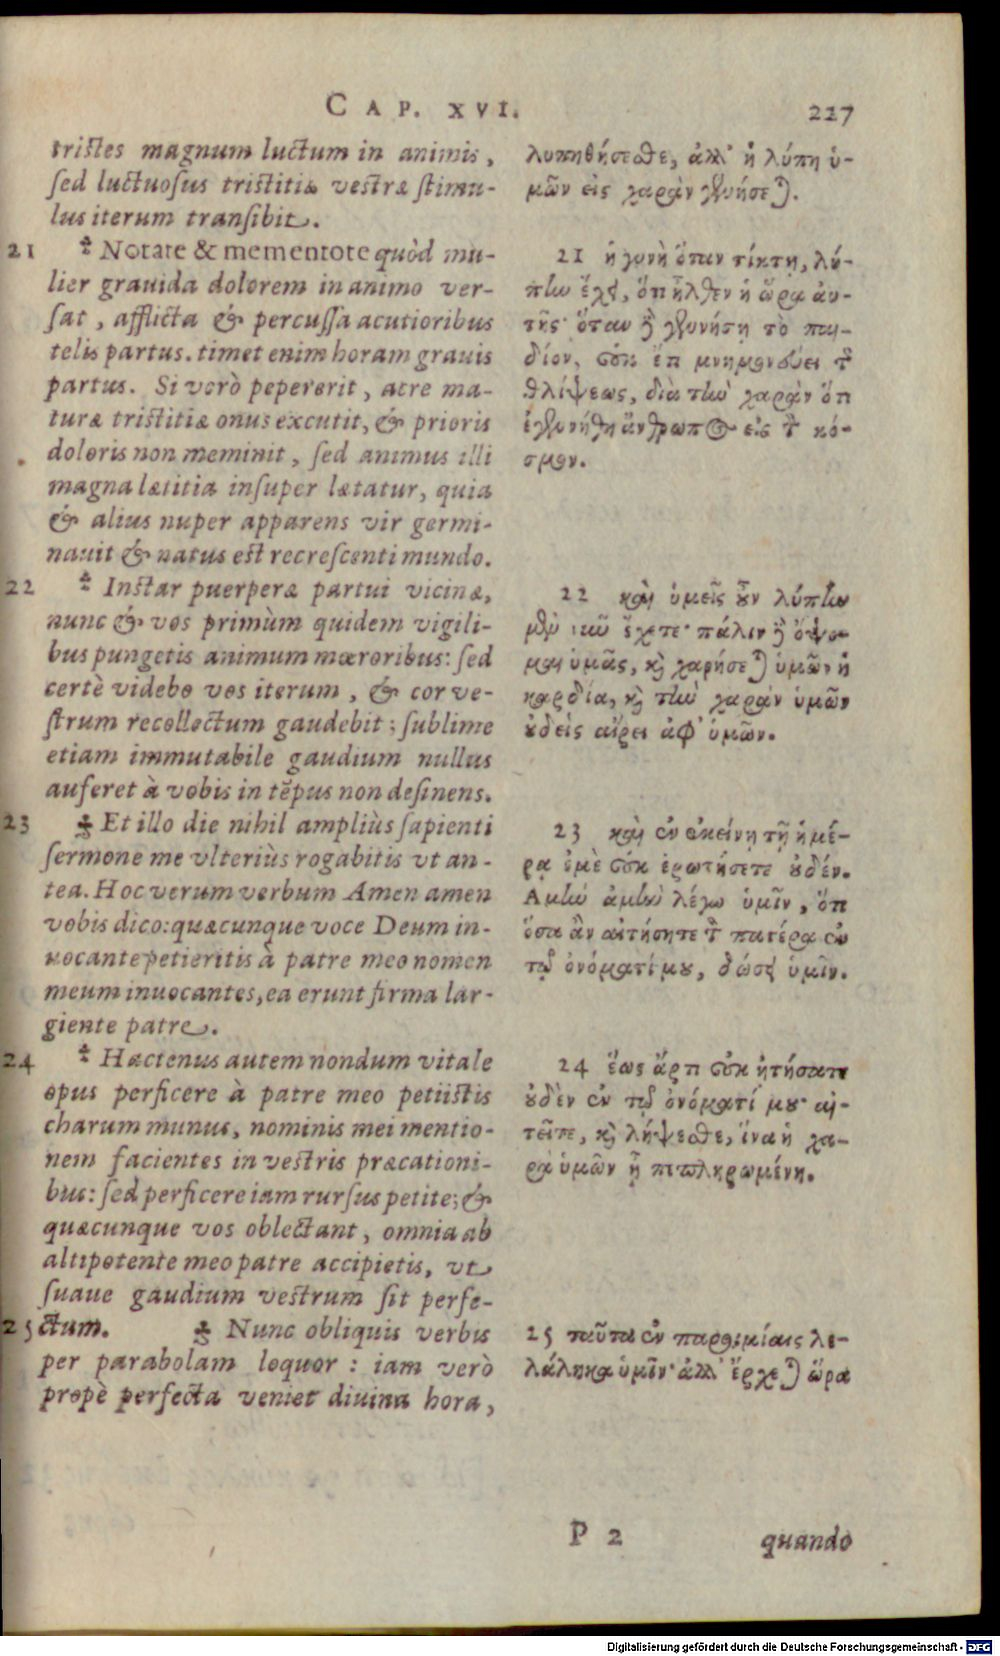 CAP. XVI. 227
tristes magnum luctum in animis,
sed luctuosus tristitiæ vestræ stimu-
lus iterum transibit.
21 Notate & mementote quòd mu-
lier grauida dolorem in animo ver-
sat, afflicta & percussa acutioribus
telis partus. timet enim horam grauis
partus. Si verò pepererit, acre ma-
turæ tristitiæ onus excutit, & prioris
doloris non meminit, sed animus illi
magna lætitia insuper lætatur, quia
& alius nuper apparens vir germi-
nauit & natus est recrescenti mundo.
22 Instar puerperæ partui vicinæ,
nunc & vos primùm quidem vigili-
bus pungetis animum mœroribus: sed
certè videbo vos iterum, & cor ve-
strum recollectum gaudebit; sublime
etiam immutabile gaudium nullus
auferet à vobis in tẽpus non desinens.
23 Et illo die nihil ampliùs sapienti
sermone me vlteriùs rogabitis vt an-
tea. Hoc verum verbum Amen amen
vobis dico: quæcunque voce Deum in-
uocante petieritis à patre meo nomen
meum inuocantes, ea erunt firma lar-
giente patre.
24 Hactenus autem nondum vitale
opus perficere à patre meo petiistis
charum munus, nominis mei mentio-
nem facientes in vestris præcationi-
bus: sed perficere iam rursus petite; &
quæcunque vos oblectant, omnia ab
altipotente meo patre accipietis, vt
suaue gaudium vestrum sit perfe-
25 ctum. Nunc obliquis verbis
per parabolam loquor: iam verò
propè perfecta veniet diuina hora,
λυπηθήσεσθε, ἀλλ' ἡ λύπη ὑ-
μῶν εἰς χαρὰν γενήσεται.
21 ἡ γυνὴ ὅταν τίκτῃ, λύ-
πην ἔχει, ὅτι ἦλθεν ἡ ὥρα αὐ-
τῆς· ὅταν δὲ γεννήσῃ τὸ παι-
δίον, οὐκ ἔτι μνημονεύει τῆς
θλίψεως, διὰ τὴν χαρὰν ὅτι
ἐγεννήθη ἄνθρωπος εἰς τὸν κό-
σμον.
22 καὶ ὑμεῖς οὖν λύπην
μὲν νῦν ἔχετε· πάλιν δὲ ὄψο-
μαι ὑμᾶς, καὶ χαρήσεται ὑμῶν ἡ
καρδία, καὶ τὴν χαρὰν ὑμῶν
οὐδεὶς αἴρει ἀφ' ὑμῶν.
23 καὶ ἐν ἐκείνῃ τῇ ἡμέ-
ρᾳ ἐμὲ οὐκ ἐρωτήσετε οὐδέν.
Αμὴν ἀμὴν λέγω ὑμῖν, ὅτι
ὅσα ἂν αἰτήσητε τὸν πατέρα ἐν
τῷ ὀνόματί μου, δώσει ὑμῖν.
24 ἕως ἄρτι οὐκ ᾐτήσατε
οὐδὲν ἐν τῷ ὀνόματί μου· αἰ-
τεῖτε, καὶ λήψεσθε, ἵνα ἡ χα-
ρὰ ὑμῶν ᾖ πεπληρωμένη.
25 ταῦτα ἐν παροιμίαις λε-
λάληκα ὑμῖν· ἀλλ' ἔρχεται ὥρα
P 2 quando
Digitalisierung gefördert durch die Deutsche Forschungsgemeinschaft - DFG